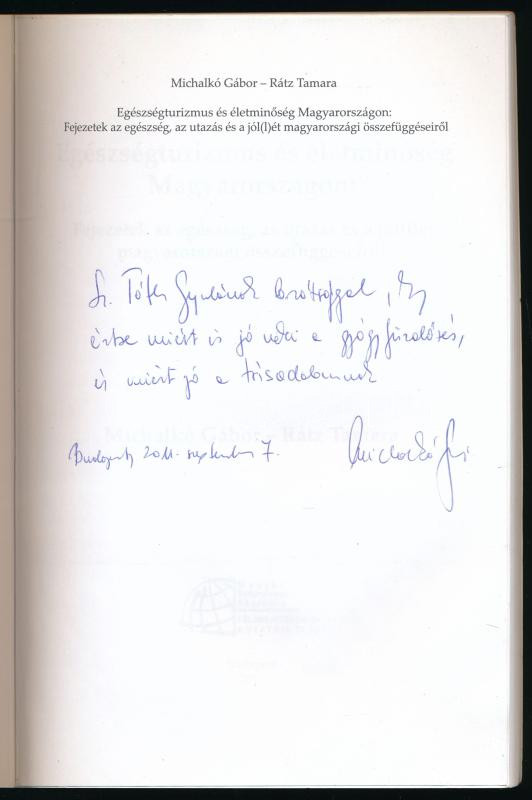 Michalkó Gábor – Rátz Tamara
Egészségturizmus és életminőség Magyarországon:
Fejezetek az egészség, az utazás és a jól(l)ét magyarországi összefüggéseiről
Egészségturizmus és életminőség
Magyarországon:
Fejezetek az egészség, az utazás és a jól(l)ét
magyarországi összefüggéseiről
Tóth Gyulának barátsággal, hogy
értse miért is jó neki a gyógyfürdőzés,
és miért jó a társadalomnak
Michalkó Gábor – Rátz Tamara
Budapest, 2011. szeptember 7. Michalkó G